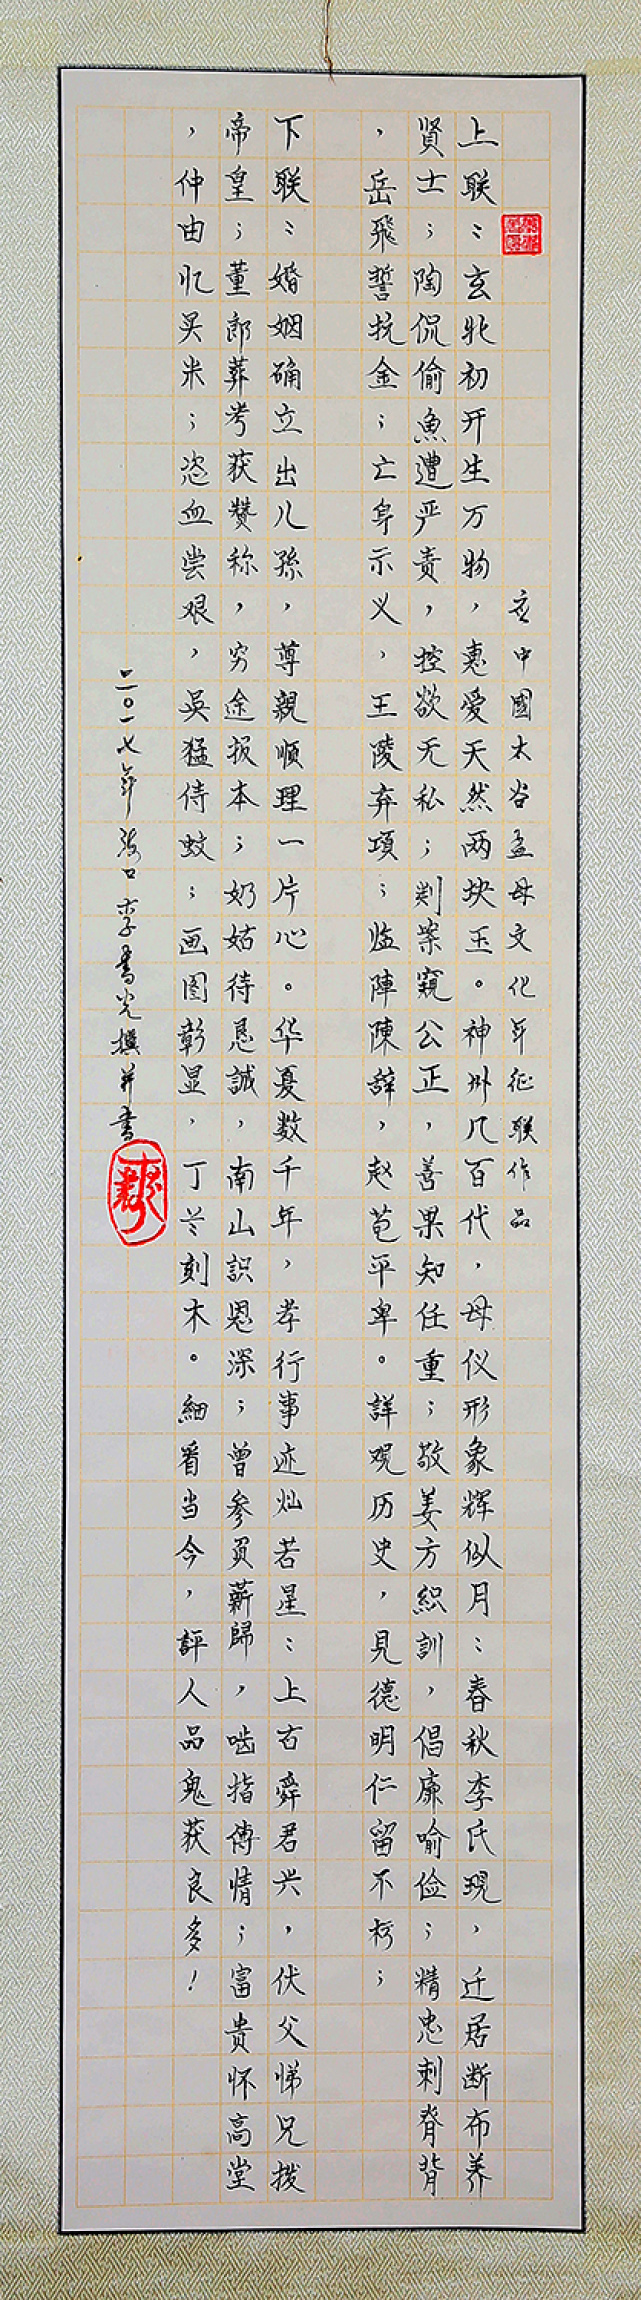 立中國太谷孟母文化年征联作品
上联：玄牝初开生万物，惠爱天然两块玉。神州几百代，母仪形象辉似月：春秋李氏現，迁居断布养
贤士；陶侃偷魚遭严责，控欲无私；剡案窺公正，善果知任重；敬姜方织訓，倡廉喻俭；精忠刺脊背
，岳飛誓抗金；亡身示义，王陵弃項；临陣陳辞，赵苞平卑。詳观历史，見德明仁留不朽；
下联：婚姻确立出儿孫，尊親順理一片心。华夏数千年，孝行事迹灿若星：上古舜君兴，伏父悌兄拨
帝皇；董郎葬考获赞称，穷途报本；奶姑待恳誠，南山識恩深；曾参負薪歸，啮指傳情；富贵怀高堂
，仲由忆吴米；恣血尝艰，吳猛侍蚊；画图彰显，丁兰刻木。細看当今，評人品鬼获良多！
二〇一七年海口李書光撰并書